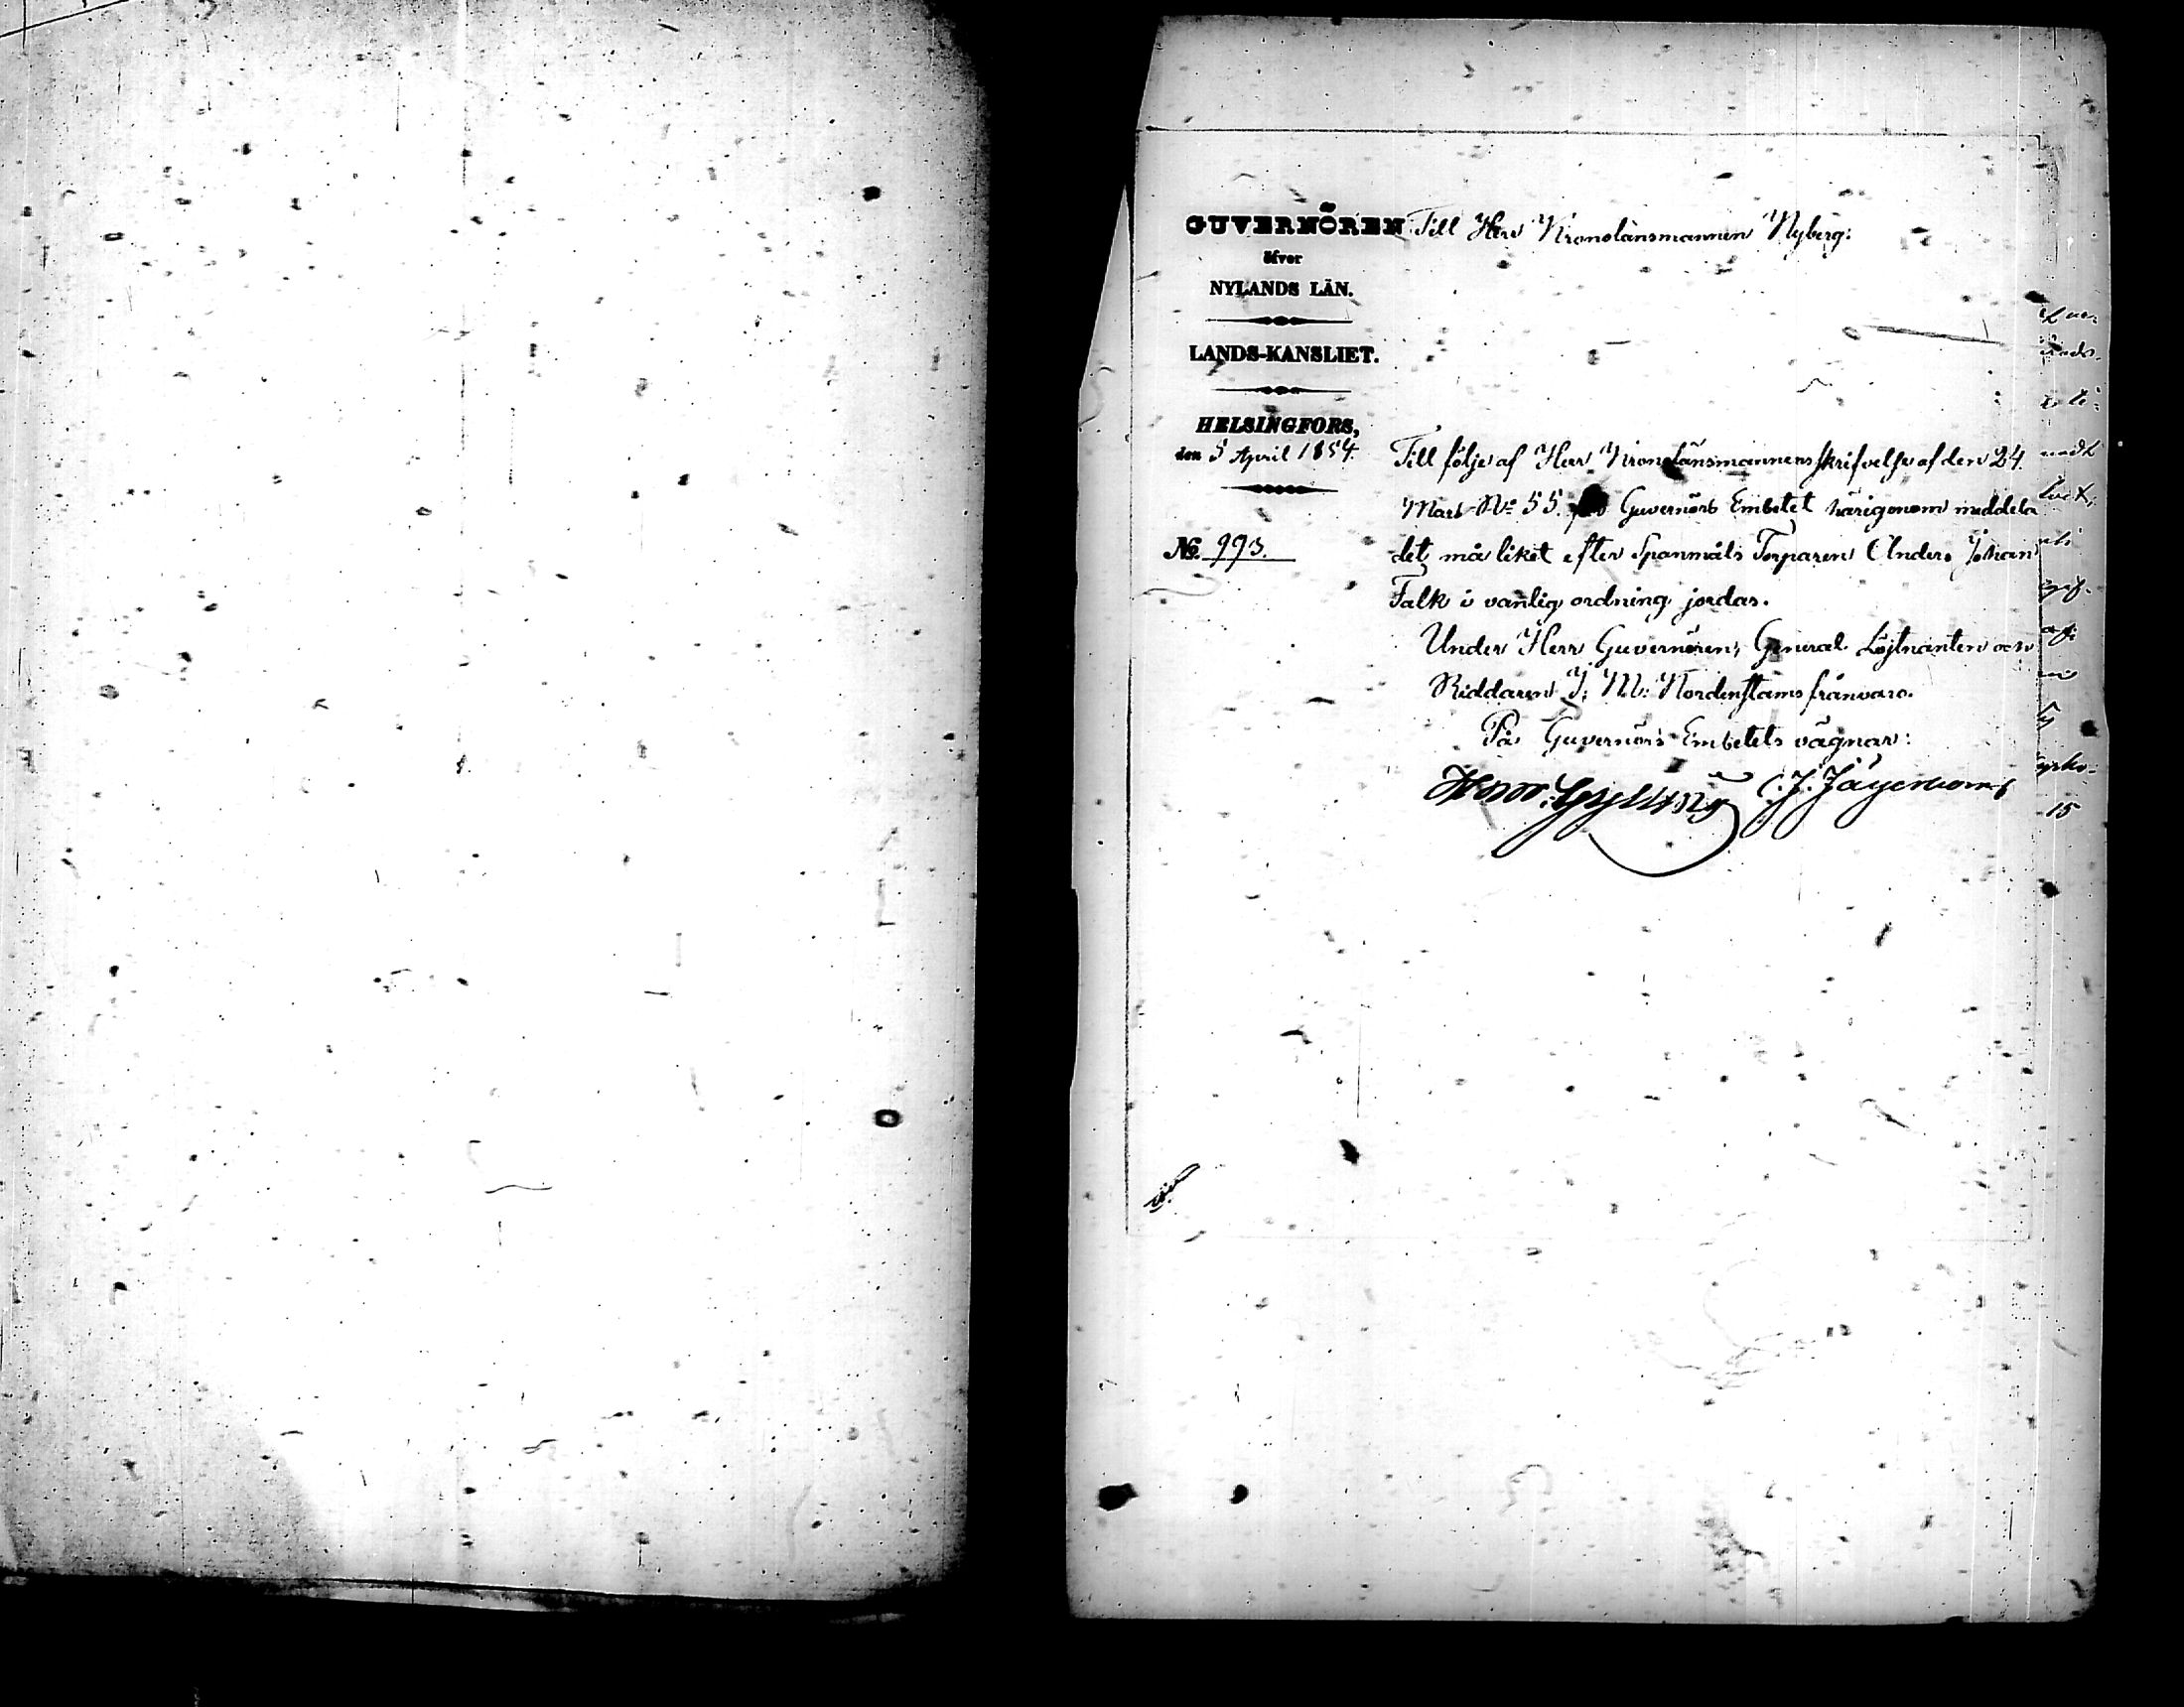 GUVERNÖREN
öfver
NYLANDS LÄN.
LANDS-KANSLIET.
HELSINGFORS,
den 5 April 1854.
No. 993.
Till Herr Kronolänsmannen Nyberg:
Till följe af Herr Kronolänsmannens skrifvelse af den 24.
Mars No 55. Guvernörs Embetet härigenom meddela
det må liket efter Spanmåls Torparen Anders Johan
Falk i vanlig ordning jordas.
Under Herr Guvernören, General Löjtnanten och
Riddaren J. M. Nordenstams frånvaro.
På Guvernörs Embetets vägnar:
Gylling C. J. Jägerhorn
15